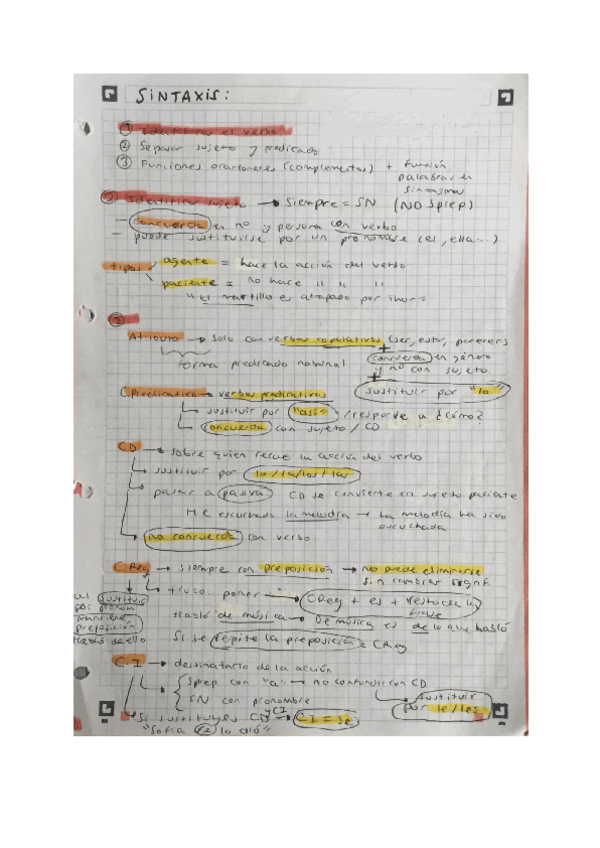 SINTAXIS:
① Identificar el verbo
② Separar sujeto y predicado
③ Funciones oracionales (complementos) + función
palabras en
sintagmas
② Identificar sujeto → Siempre = SN (NO SPrep)
- concuerda en no y persona con verbo
- puede sustituirse por un pronombre (el, ella...)
tipos agente = hace la acción del verbo
paciente = no hace " " "
"El martillo es atrapado por
③
Atributo → Solo con verbos copulativos (ser, estar, parecer)
+
concuerda en género
forma predicado nominal y no con sujeto
+
C.Predicativo → verbos predicativos sustituir por "lo"
→ sustituir por "así" / responde a ¿cómo?
→ concuerda con sujeto / CD
CD → sobre quien recae la acción del verbo
→ sustituir por lo/la/los/las
→ pasar a pasiva CD se convierte en sujeto paciente
He escuchado la melodía → La melodía ha sido
escuchada
→ no concuerda con verbo
C.Reg → siempre con preposición → no puede eliminarse
sin cambiar signf.
→ truco: poner → CReg + es + resto de la
frase
sustituir
por pronom
mantiene
preposición
Habló de ello
Habló de música → De música es de lo que habló
Si se repite la preposición = CReg
C.I → destinatario de la acción
→ Sprep con "a" → no confundir con CD
SN con pronombre
sustituir
por le/les
→ Si sustituyes CD y CI → CI = se
"Sofia se lo dió"